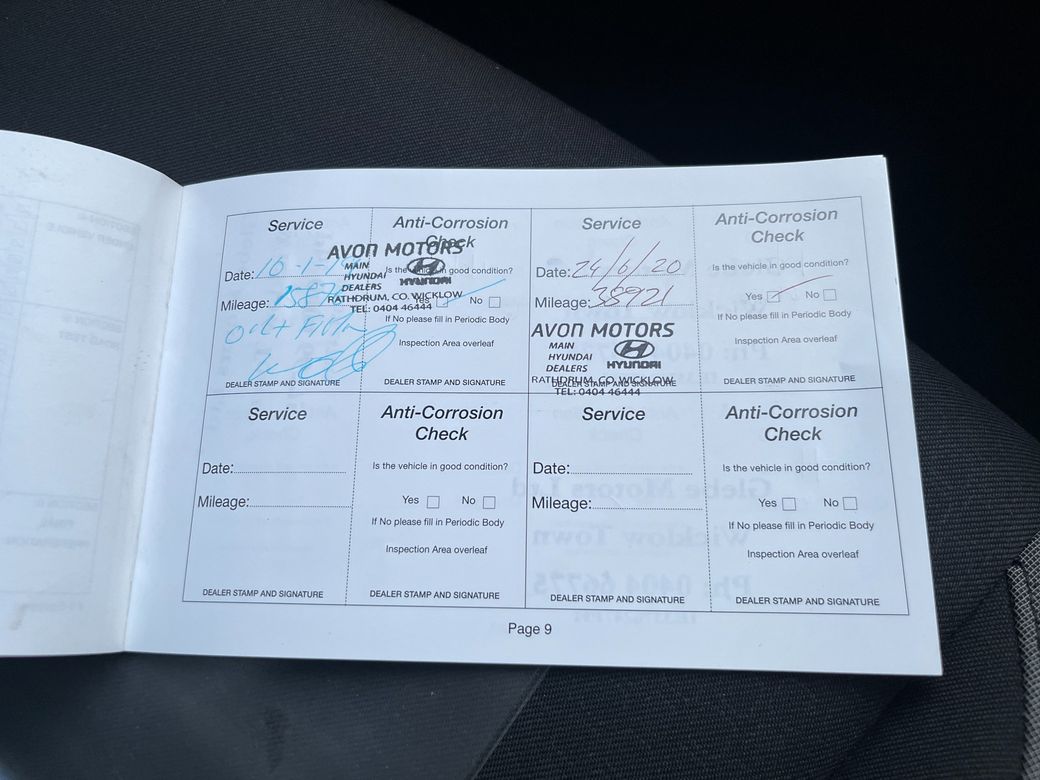 Service
Anti-Corrosion
Check
AVON MOTORS
MAIN
HYUNDAI
DEALERS
HYUNDAI
RATHDRUM, CO. WICKLOW
TEL: 0404 46444
Date: 10-1-19
Is the vehicle in good condition?
Mileage: 15876
Yes No
Oil + Filter
If No please fill in Periodic Body
Inspection Area overleaf
DEALER STAMP AND SIGNATURE
DEALER STAMP AND SIGNATURE
Service
Anti-Corrosion
Check
Date: 24/6/20
Is the vehicle in good condition?
Mileage: 38921
Yes No
If No please fill in Periodic Body
Inspection Area overleaf
AVON MOTORS
MAIN
HYUNDAI
DEALERS
HYUNDAI
RATHDRUM, CO. WICKLOW
TEL: 0404 46444
DEALER STAMP AND SIGNATURE
DEALER STAMP AND SIGNATURE
Service
Anti-Corrosion
Check
Date:
Is the vehicle in good condition?
Mileage:
Yes No
If No please fill in Periodic Body
Inspection Area overleaf
DEALER STAMP AND SIGNATURE
DEALER STAMP AND SIGNATURE
Service
Anti-Corrosion
Check
Date:
Is the vehicle in good condition?
Mileage:
Yes No
If No please fill in Periodic Body
Inspection Area overleaf
DEALER STAMP AND SIGNATURE
DEALER STAMP AND SIGNATURE
Page 9